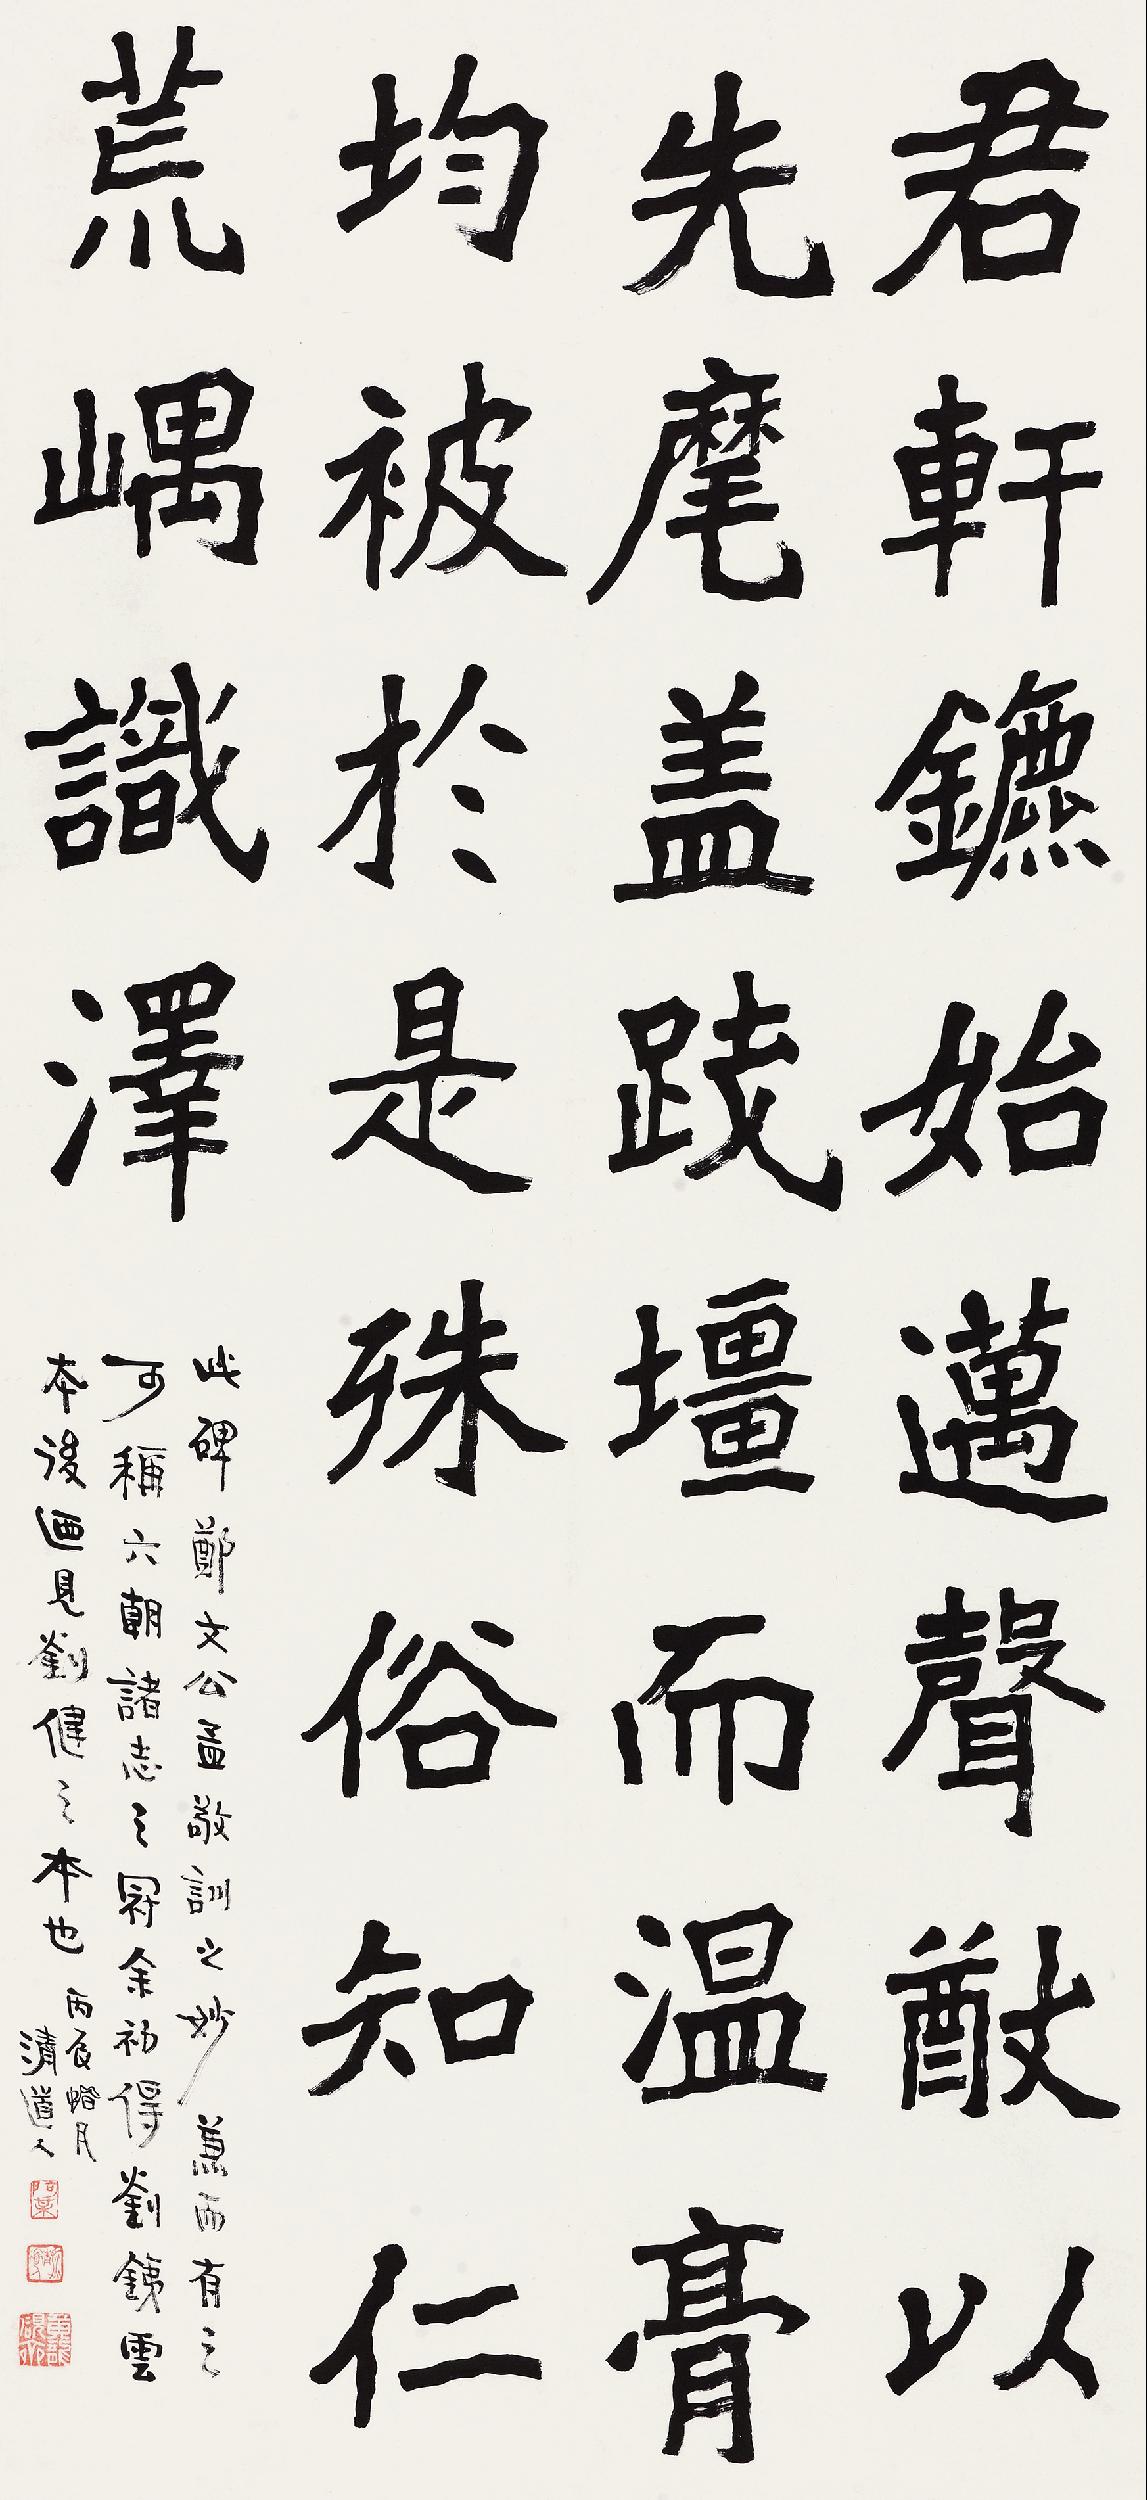 君軒鑣始邁聲猷以
先麾盖践壃而温膏
均被於是殊俗知仁
荒嵎識澤
此碑鄭文公孟敬訓之妙兼而有之
可稱六朝諸志之冠余初得劉鐵雲
本後迺見劉健之本也
丙辰蜡月
清道人